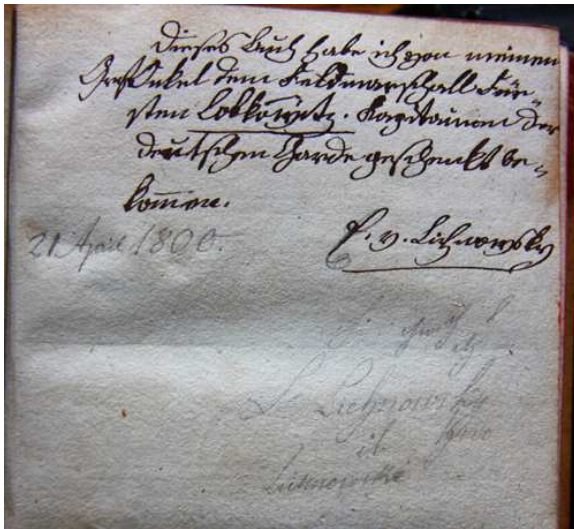 Dieses Buch habe ich von meinen
GroßOnkel dem Feldmarschall Für-
sten Lobkowitz. Kapitainen der
deutschen Garde geschenkt be-
kommen.
21 April 1800.
E. v. Lichnowsky
L Lichnowsky
Lichnowski